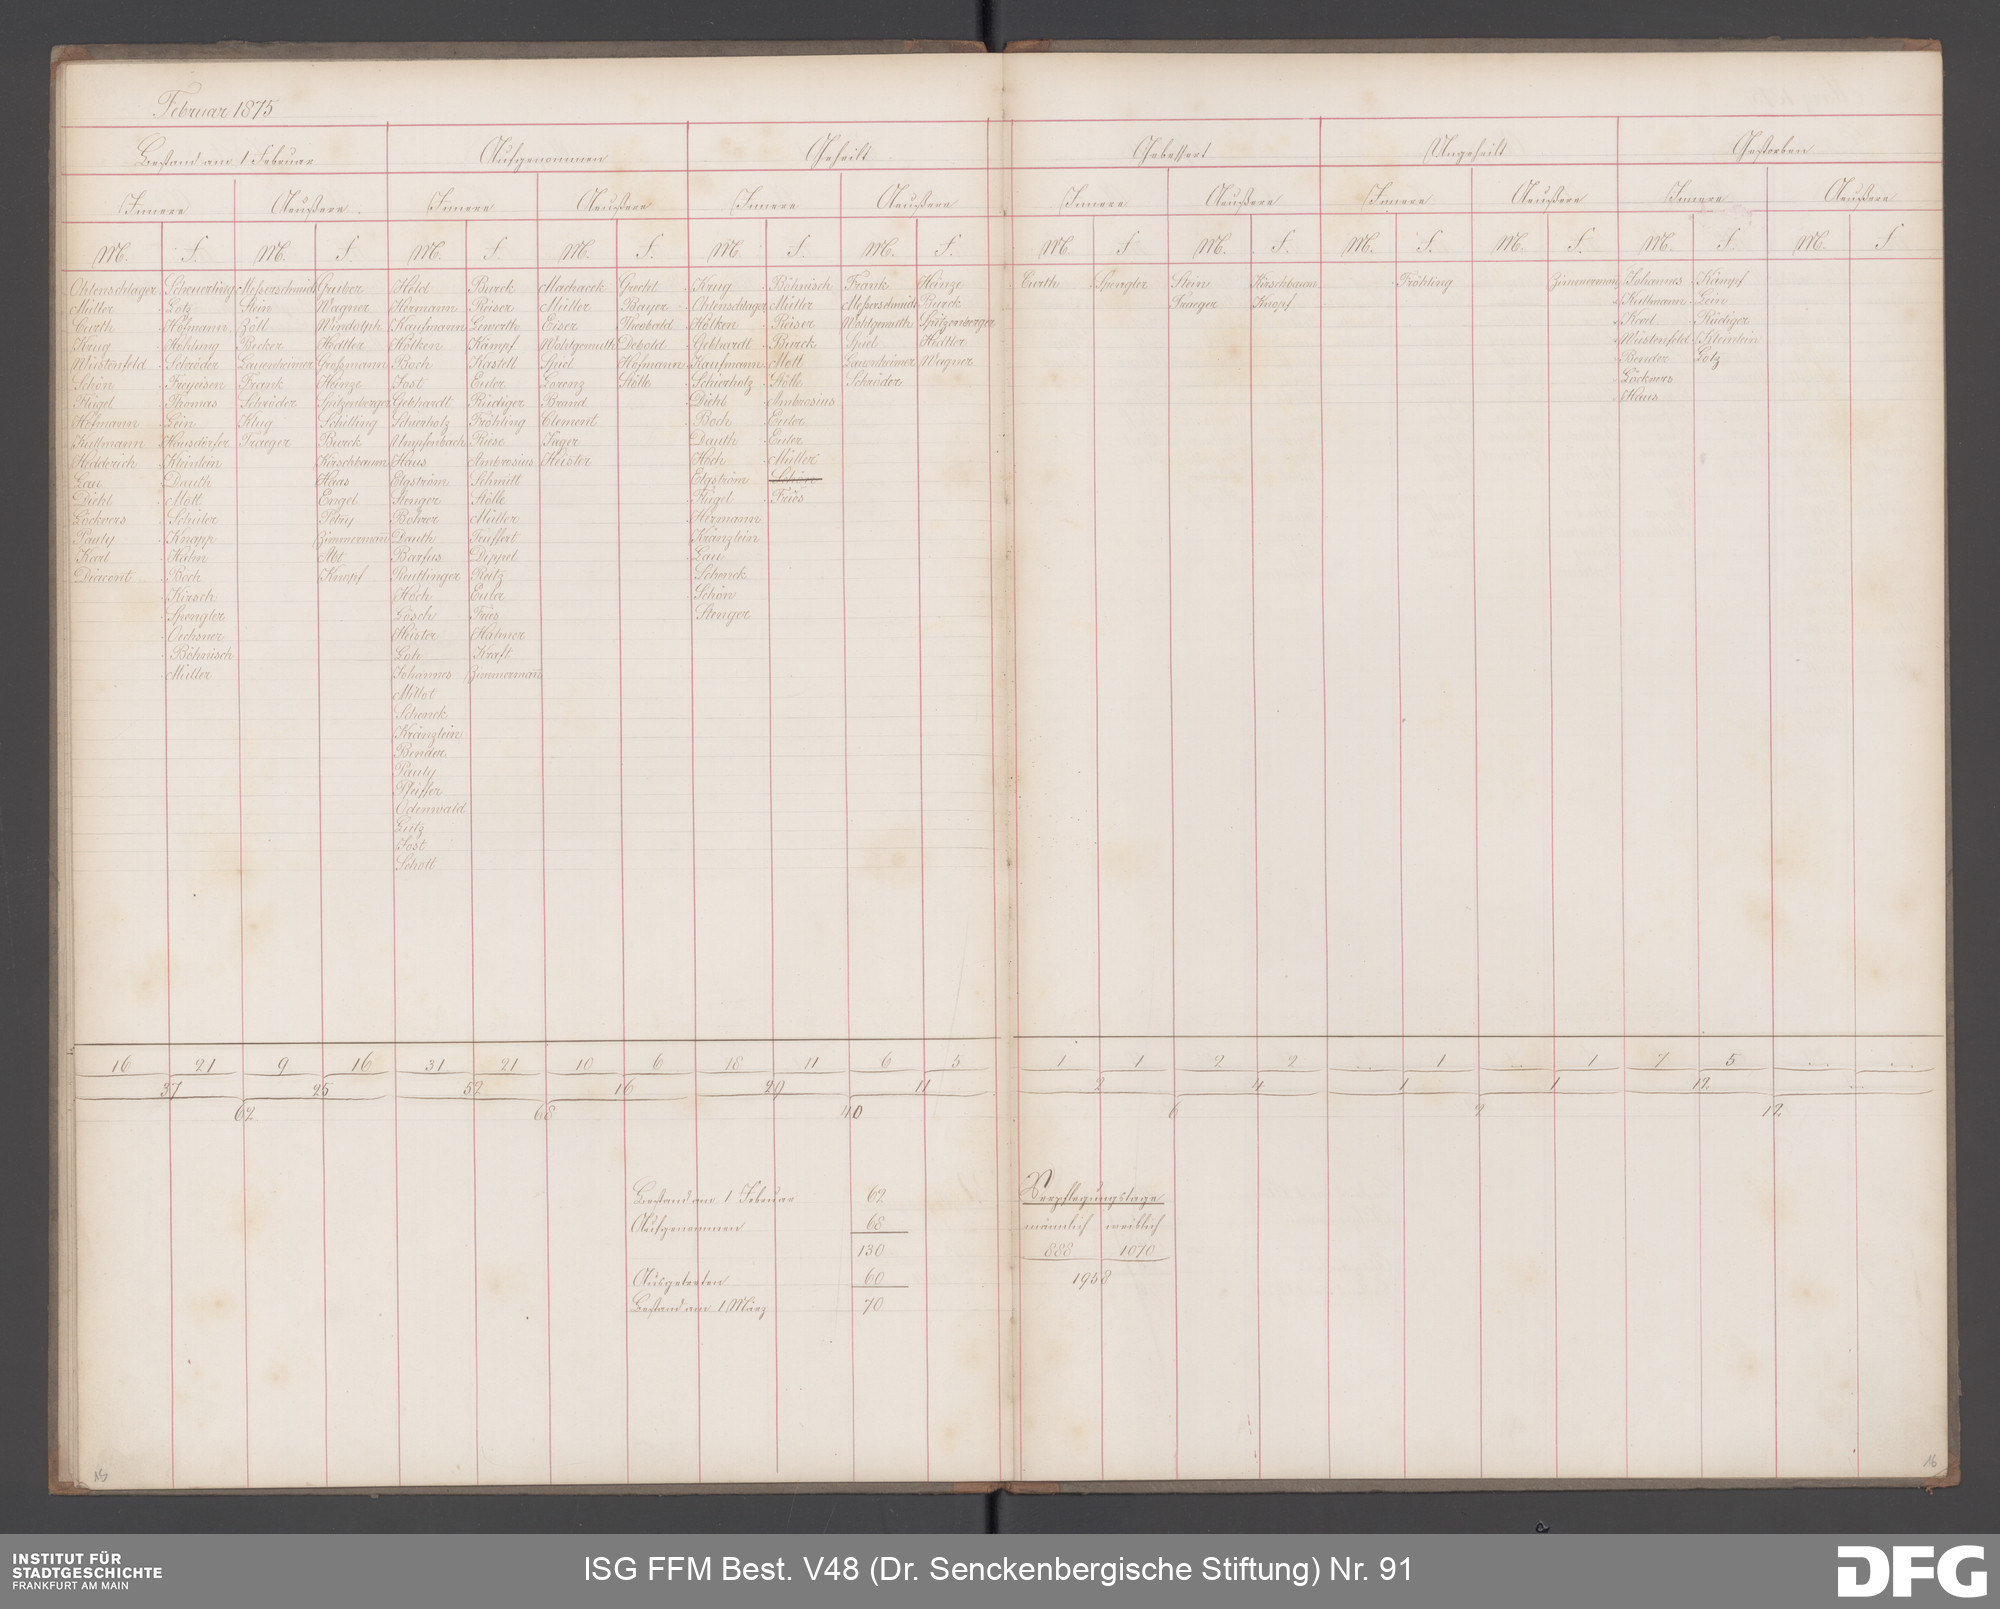 Februar 1875
Bestand am 1 Februar Aufgenommen Geheilt Gebessert Ungeheilt Gestorben
Innere Aeußere Innere Aeußere Innere Aeußere Innere Aeußere Innere Aeußere Innere Aeußere
M. F. M. F. M. F. M. F. M. F. M. F. M. F. M. F. M. F. M. F. M. F. M. F.
Ohlenschlager Scheuerling Meßerschmidt Gruber Held Burck Machacek Grecht Krug Böhnisch Frank Heinze Curth Spengler Stein Kirschbaum Fröhling Zimmermann Johannes Kämpf
Müller Lotz Stein Wagner Hermann Reiser Müller Bayer Ohlenschlager Müller Meßerschmidt Burck Traeger Knopf Kullmann Lein
Curth Hofmann Böll Windolph Kaufmann Leworth Eiser Theobald Hölken Reiser Wohlgemuth Spitzenberger Karl Rüdiger
Krug Hohlung Becker Hedtler Hölken Kämpf Wohlgemuth Debold Gebhardt Burck Spiel Hedtler Wüstenfeld Kleinlein
Wüstenfeld Schröder Lauenheimer Großmann Boch Kastell Spiel Hofmann Kaufmann Mott Lauenheimer Wagner Bender Lotz
Schön Freyeisen Frank Heinze Jost Euler Lorenz Stölle Schierholz Stölle Schröder Löckvers
Flügel Thomas Schröder Spitzenberger Gebhardt Rüdiger Brand Diehl Ambrosius Haus
Hofmann Lein Klug Schilling Schierholz Fröhling Clement Boch Euler
Kullmann Hausdörfer Traeger Burck Umpfenbach Riese Jager Dauth Euler
Hedderich Kleinlein Kirschbaum Haus Ambrosius Heister Hoch Müller
Lau Dauth Haas Elgström Schmitt Elgström Schön
Diehl Mott Engel Stenger Stölle Flügel Fries
Löckvers Schüler Petry Bohrer Müller Hermann
Pauly Knapp Zimmermann Dauth Teuffert Kränzlein
Karl Halm Abt Barfus Dippel Lau
Diacont Boch Knopf Reutlinger Reitz Schenck
Kirsch Hoch Euler Schön
Spengler Gösch Fries Stenger
Oechsner Heister Hahner
Böhnisch Loh Kraft
Müller Johannes Zimmermann
Millot
Schenck
Kränzlein
Bender
Pauly
Pfeiffer
Odenwald
Lutz
Jost
Scholl
16 21 9 16 31 21 10 6 18 11 6 5 1 1 2 2 .. 1 .. 1 7 5 .. ..
37 25 52 16 29 11 2 4 1 1 12 ..
62 68 40 6 2 12
Bestand am 1 Februar 62
Aufgenommen 68
130
Ausgetreten 60
Bestand am 1 März 70
Verpflegungstage
männlich weiblich
888 1070
1958
15
16
INSTITUT FÜR
STADTGESCHICHTE
FRANKFURT AM MAIN
ISG FFM Best. V48 (Dr. Senckenbergische Stiftung) Nr. 91
DFG